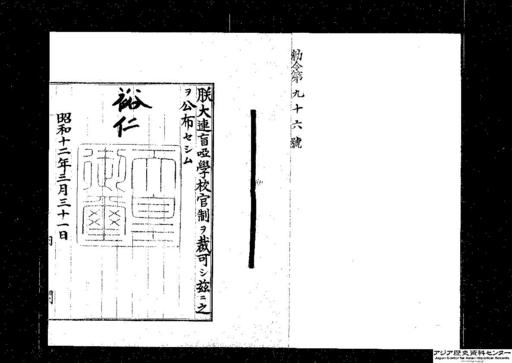 勅令第九十六號
朕大連盲啞學校官制ヲ裁可シ茲ニ之
ヲ公布セシム
裕仁
天皇
御璽
昭和十二年三月三十一日
アジア歴史資料センター
Japan Center for Asian Historical Records